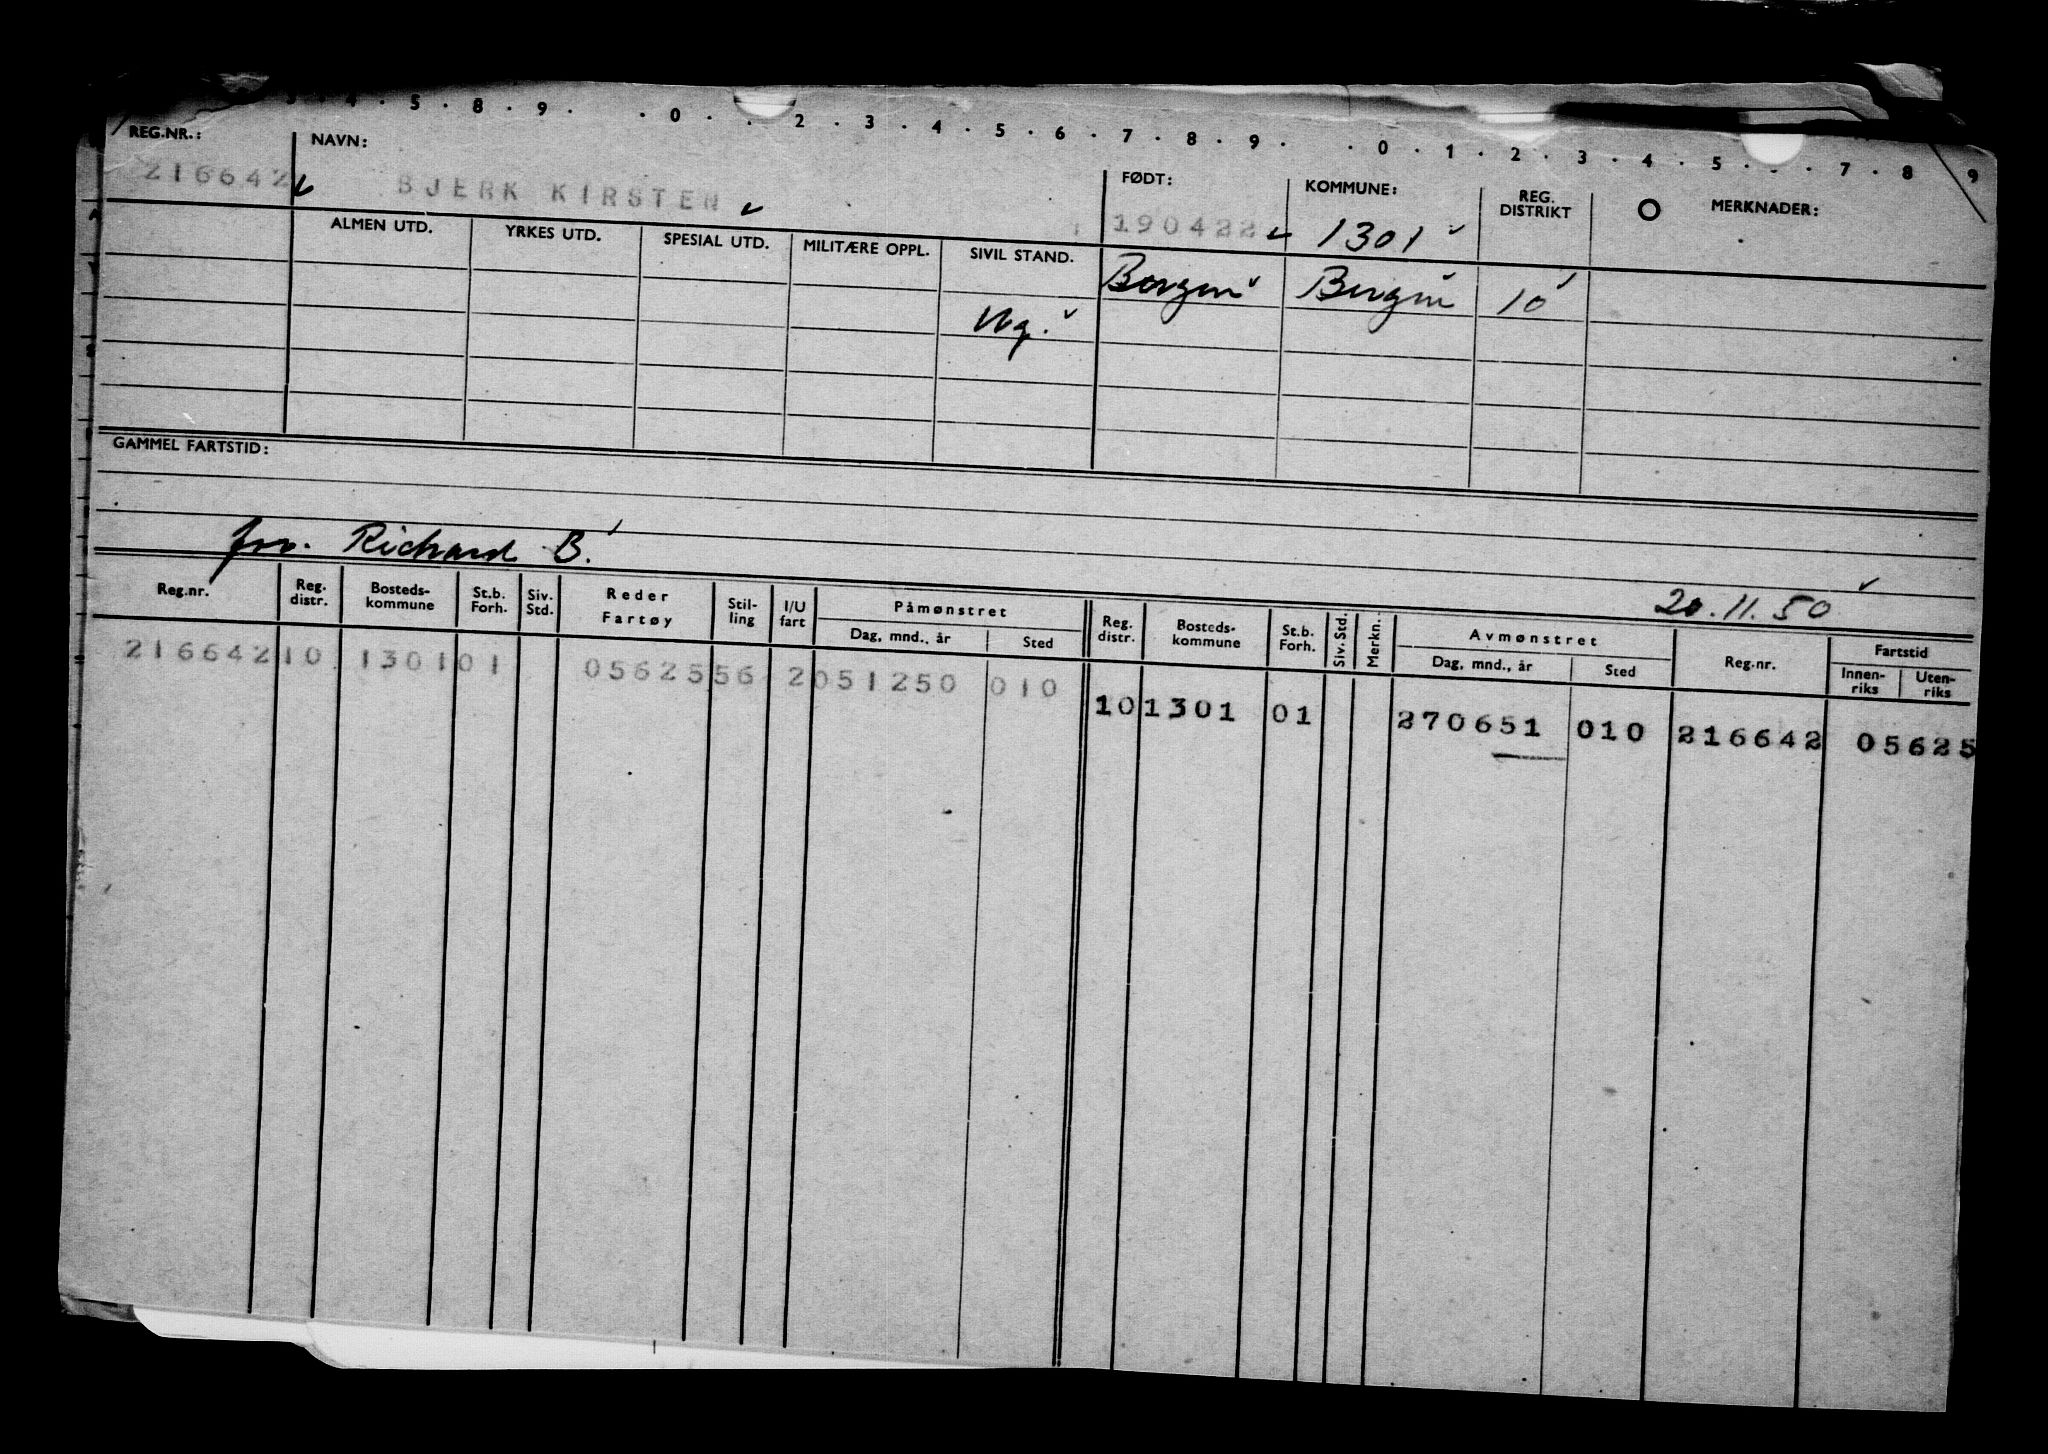 3 . 4 . 5 . 8 . 9 . . 0 . . 2 . 3 . 4 . 5 . 6 . 7 . 8 . 9 . . 0 . 1 . 2 . 3 . 4 . 5 . . . 7 . 8 . 9
REG.NR.: NAVN: FØDT: KOMMUNE: REG. DISTRIKT O MERKNADER:
216642 BJERK KIRSTEN 190422 1301
ALMEN UTD. YRKES UTD. SPESIAL UTD. MILITÆRE OPPL. SIVIL STAND.
Ug. Bergen Bergen 10
GAMMEL FARTSTID:
Richard B.
20.11.50
Reg.nr. Reg. distr. Bosteds- kommune St.b. Forh. Siv. Std. Reder Fartøy Stil- ling I/U fart Påmønstret Reg. distr. Bosteds- kommune St.b. Forh. Siv. Std. Merkn. Avmønstret Reg.nr. Fartstid
Dag, mnd., år Sted Dag, mnd., år Sted Innen- riks Uten- riks
216642 10 1301 01 05625 56 2 051250 010
10 1301 01 270651 010 216642 05625